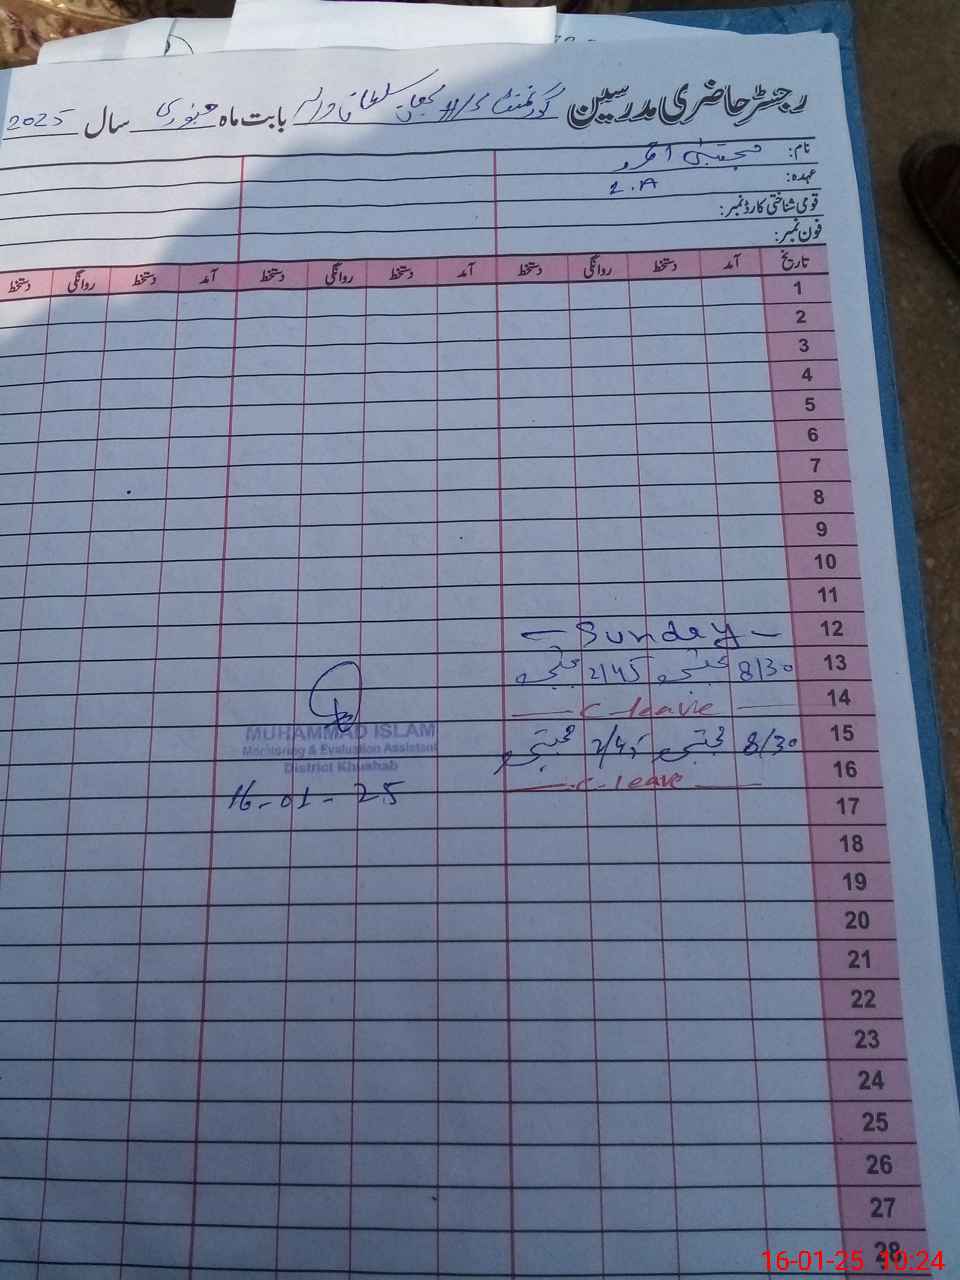 رجسٹر حاضری مدرسین گورنمنٹ بابت ماہ جنوری سال 2025
نام: مجتبیٰ احمد
عہدہ:
قومی شناختی کارڈ نمبر:
فون نمبر:
تاریخ آمد دستخط روانگی دستخط آمد دستخط روانگی دستخط آمد دستخط روانگی دستخط
1
2
3
4
5
6
7
8
9
10
11
12 - Sunday -
13 8/30 مجتبیٰ 2/45 مجتبیٰ
14 C leave
15 8/30 مجتبیٰ 2/45 مجتبیٰ
16 C. leave
MUHAMMAD ISLAM
Monitoring & Evaluation Assistant
District Khushab
16-01-25
17
18
19
20
21
22
23
24
25
26
27
28
16-01-25 10:24